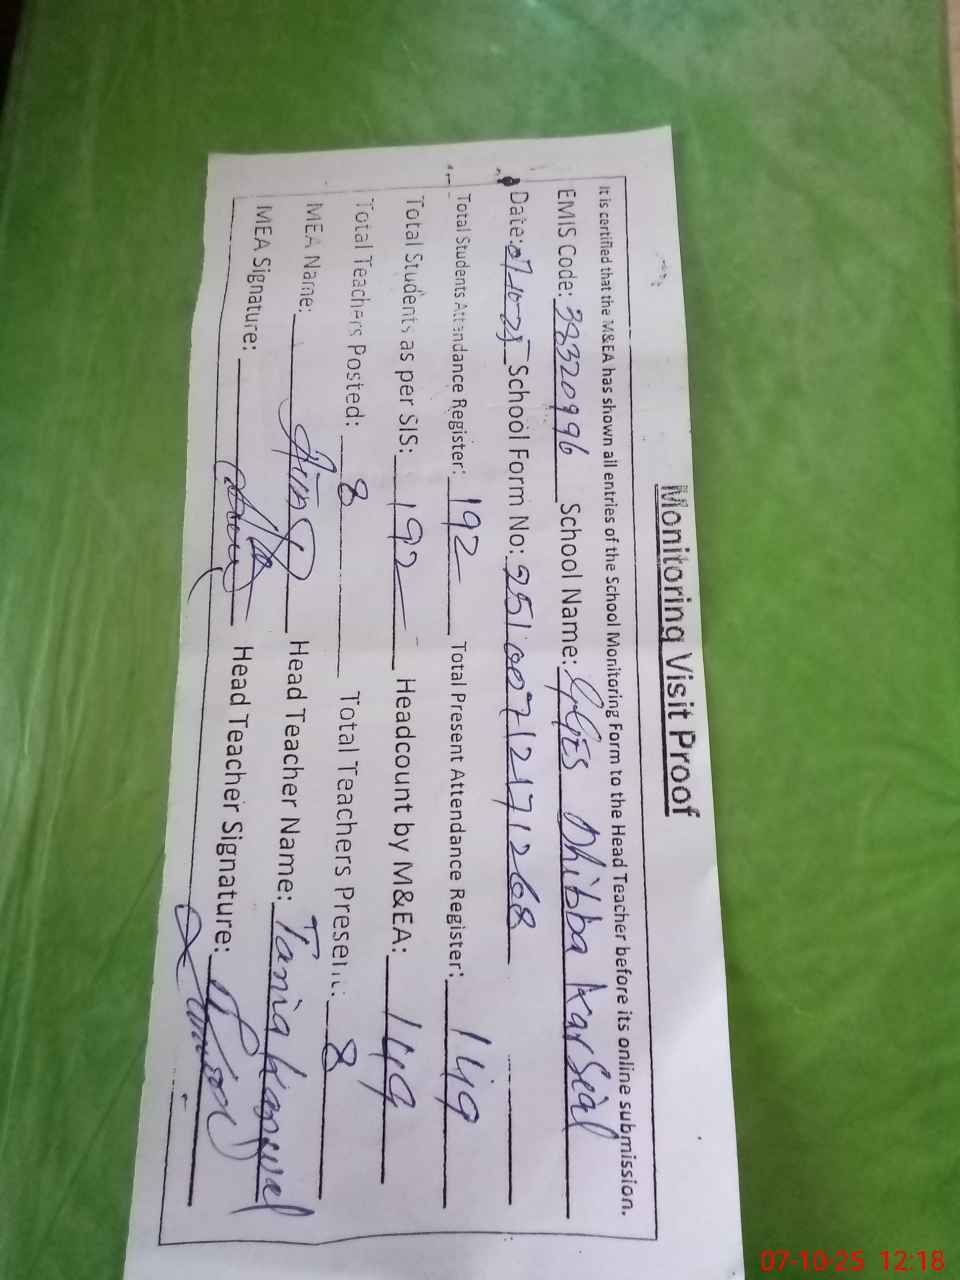 Monitoring Visit Proof
It is certified that the M&EA has shown all entries of the School Monitoring Form to the Head Teacher before its online submission.
EMIS Code: 38320996 School Name: GGES Dhibba Kar Sial
Date: 07-10-25 School Form No: 25100712171268
Total Students Attendance Register: 192 Total Present Attendance Register: 149
Total Students as per SIS: 192 Headcount by M&EA: 149
Total Teachers Posted: 8 Total Teachers Present: 8
MEA Name: Head Teacher Name: Tania Kanwal
MEA Signature: Head Teacher Signature:
07-10-25 12:18